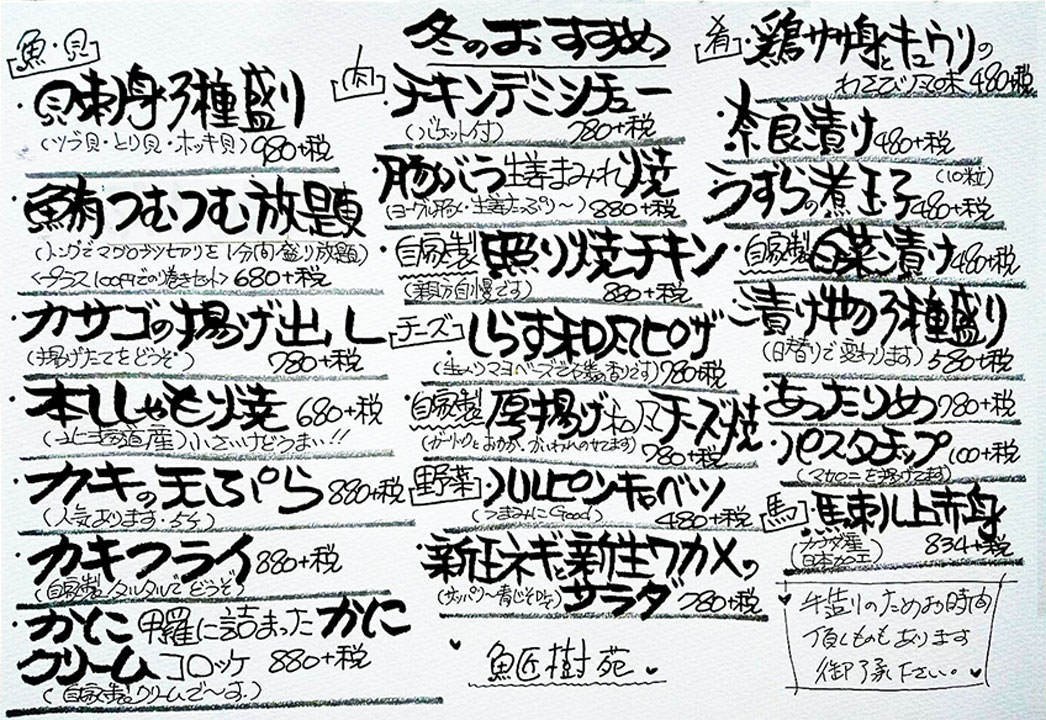 冬のおすすめ
魚・貝
・貝刺身3種盛り
(ツブ貝・とり貝・ホッキ貝) 980+税
・鮪つむつむ放題
(トングでマグロブツ切りを1分間盛り放題)
<プラス100円でのり巻きセット> 680+税
・カサゴの揚げ出し
(揚げたてをどうぞ) 780+税
・本ししゃもり焼 680+税
(北海道産)小さいけどうまい!!
・カキの天ぷら 880+税
(人気あります・5ケ)
・カキフライ 880+税
(自家製タルタルでどうぞ)
・かにこ甲羅に詰まったかに
クリームコロッケ 880+税
(自家製クリームで〜す)
肉
・チキンデミシチュー
(バケット付) 780+税
・豚バラ生姜まみれ焼
(ヨーグルト〆・生姜たっぷり〜) 880+税
・自家製照り焼チキン
(親方自慢です) 880+税
チーズ
・しらす和風ピザ
780+税
・自家製厚揚げ和風チーズ焼
(ガーリックとおかか、かいわれのせてます) 780+税
野菜
・ハルピンキャベツ
(つまみにGood) 480+税
・新玉ネギと新生ワカメの
サラダ 780+税
(サッパリ〜青じそ
魚匠樹苑
肴
・鶏ササ身とキュウリの
わさび風味 480+税
・奈良漬け 480+税
・うずらの煮玉子 (10粒) 480+税
・自家製白菜漬け 480+税
・漬け物3種盛り
(日替りで変わります) 580+税
・あったりめ 780+税
・パスタチップ 100+税
(マカロニを揚げてます)
馬
・馬刺し上赤身
(カナダ産
日本加工) 834+税
手造りのためお時間
頂くものもあります
御了承下さい。